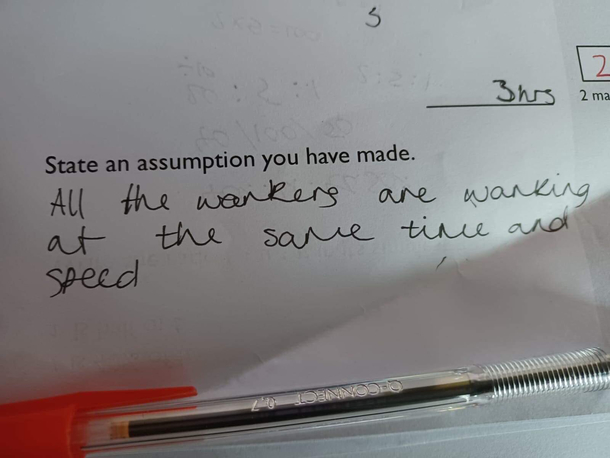 5
3hrs
2
2 ma
State an assumption you have made.
All the wankers are wanking
at the same time and
speed
Q-CONNECT 0.7